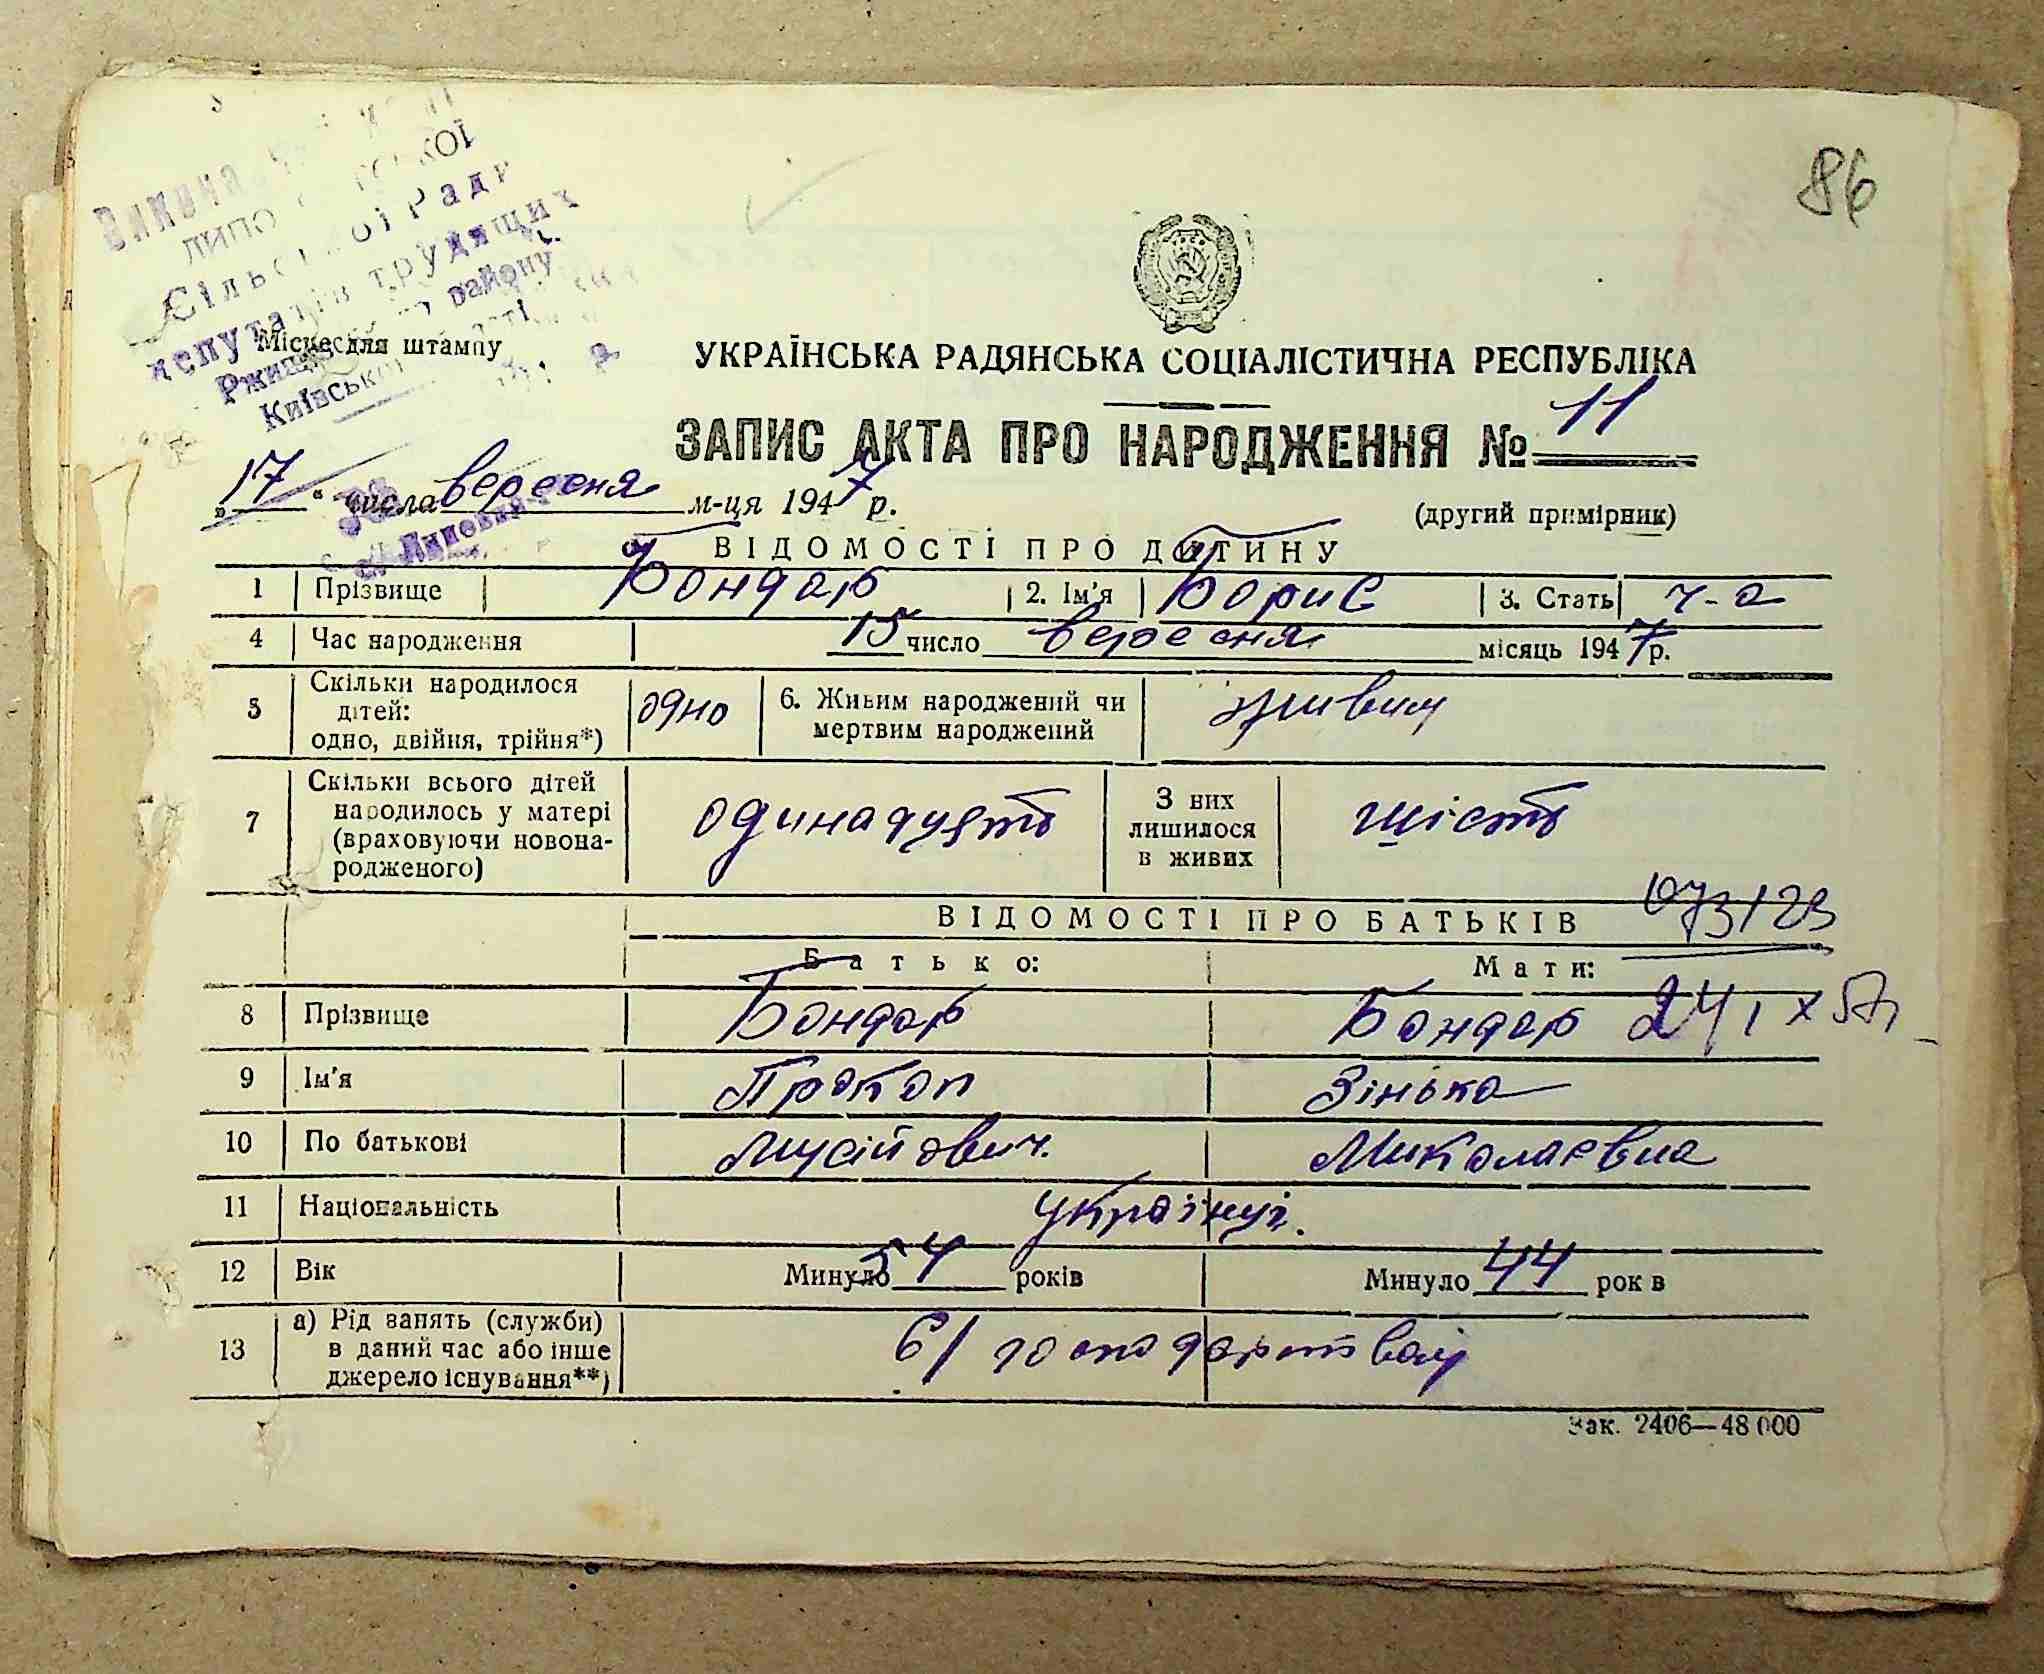 86
Сільської Ради
депутатів трудящих
району
Київської
Місце для штампу
УКРАЇНСЬКА РАДЯНСЬКА СОЦІАЛІСТИЧНА РЕСПУБЛІКА
ЗАПИС АКТА ПРО НАРОДЖЕННЯ № 11
„17“ числа вересня м-ця 1947 р.
(другий примірник)
ВІДОМОСТІ ПРО ДИТИНУ
1 Прізвище Бондар 2. Ім'я Борис 3. Стать ч-а
4 Час народження 15 число вересня місяць 1947 р.
5 Скільки народилося дітей: одно, двійня, трійня*) одно 6. Живим народжений чи мертвим народжений живим
7 Скільки всього дітей народилось у матері (враховуючи новонародженого) одинадцять З них лишилося в живих шість
ВІДОМОСТІ ПРО БАТЬКІВ
Батько: Мати:
8 Прізвище Бондар Бондар
9 Ім'я Прокоп Зінька
10 По батькові Мусійович. Миколаєвна
11 Національність українці.
12 Вік Минуло 54 років Минуло 44 рок в
13 а) Рід занять (служби) в даний час або інше джерело існування**) господарстві
Зак. 2406—48 000